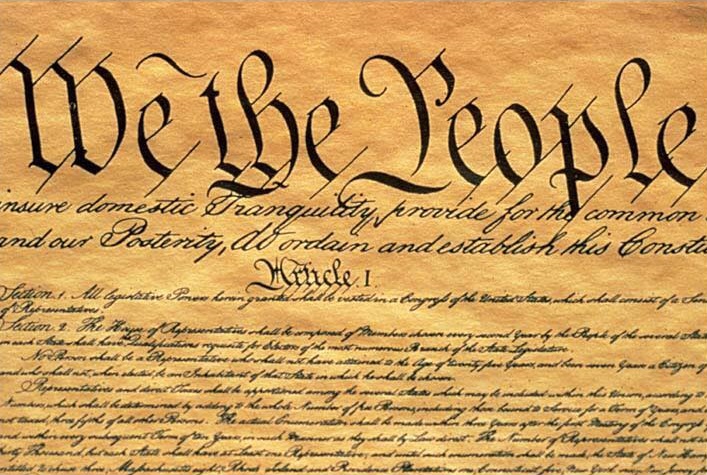 We the People
insure domestic Tranquility, provide for the common
and our Posterity, do ordain and establish this Constit
Article I
Section 1. All legislative Powers herein granted shall be vested in a Congress of the United States, which shall consist of a Sen
of Representatives.
Section 2. The House of Representatives shall be composed of Members chosen every second Year by the People of the several States
in each State shall have Qualifications requisite for Electors of the most numerous Branch of the State Legislature.
No Person shall be a Representative who shall not have attained to the Age of twenty five Years, and been seven Years a Citizen of
and who shall not, when elected, be an Inhabitant of that State in which he shall be chosen.
Representatives and direct Taxes shall be apportioned among the several States which may be included within this Union, according to
Numbers, which shall be determined by adding to the whole Number of free Persons, including those bound to Service for a Term of Years, and
not taxed, three fifths of all other Persons. The actual Enumeration shall be made within three Years after the first Meeting of the Congress
and within every subsequent Term of ten Years, in such Manner as they shall by Law direct. The Number of Representatives shall not
thirty Thousand, but each State shall have at Least one Representative; and until such enumeration shall be made, the State of New Ham
entitled to chuse three, Massachusetts eight, Rhode Island and Providence Plantations one, Connecticut five, New York